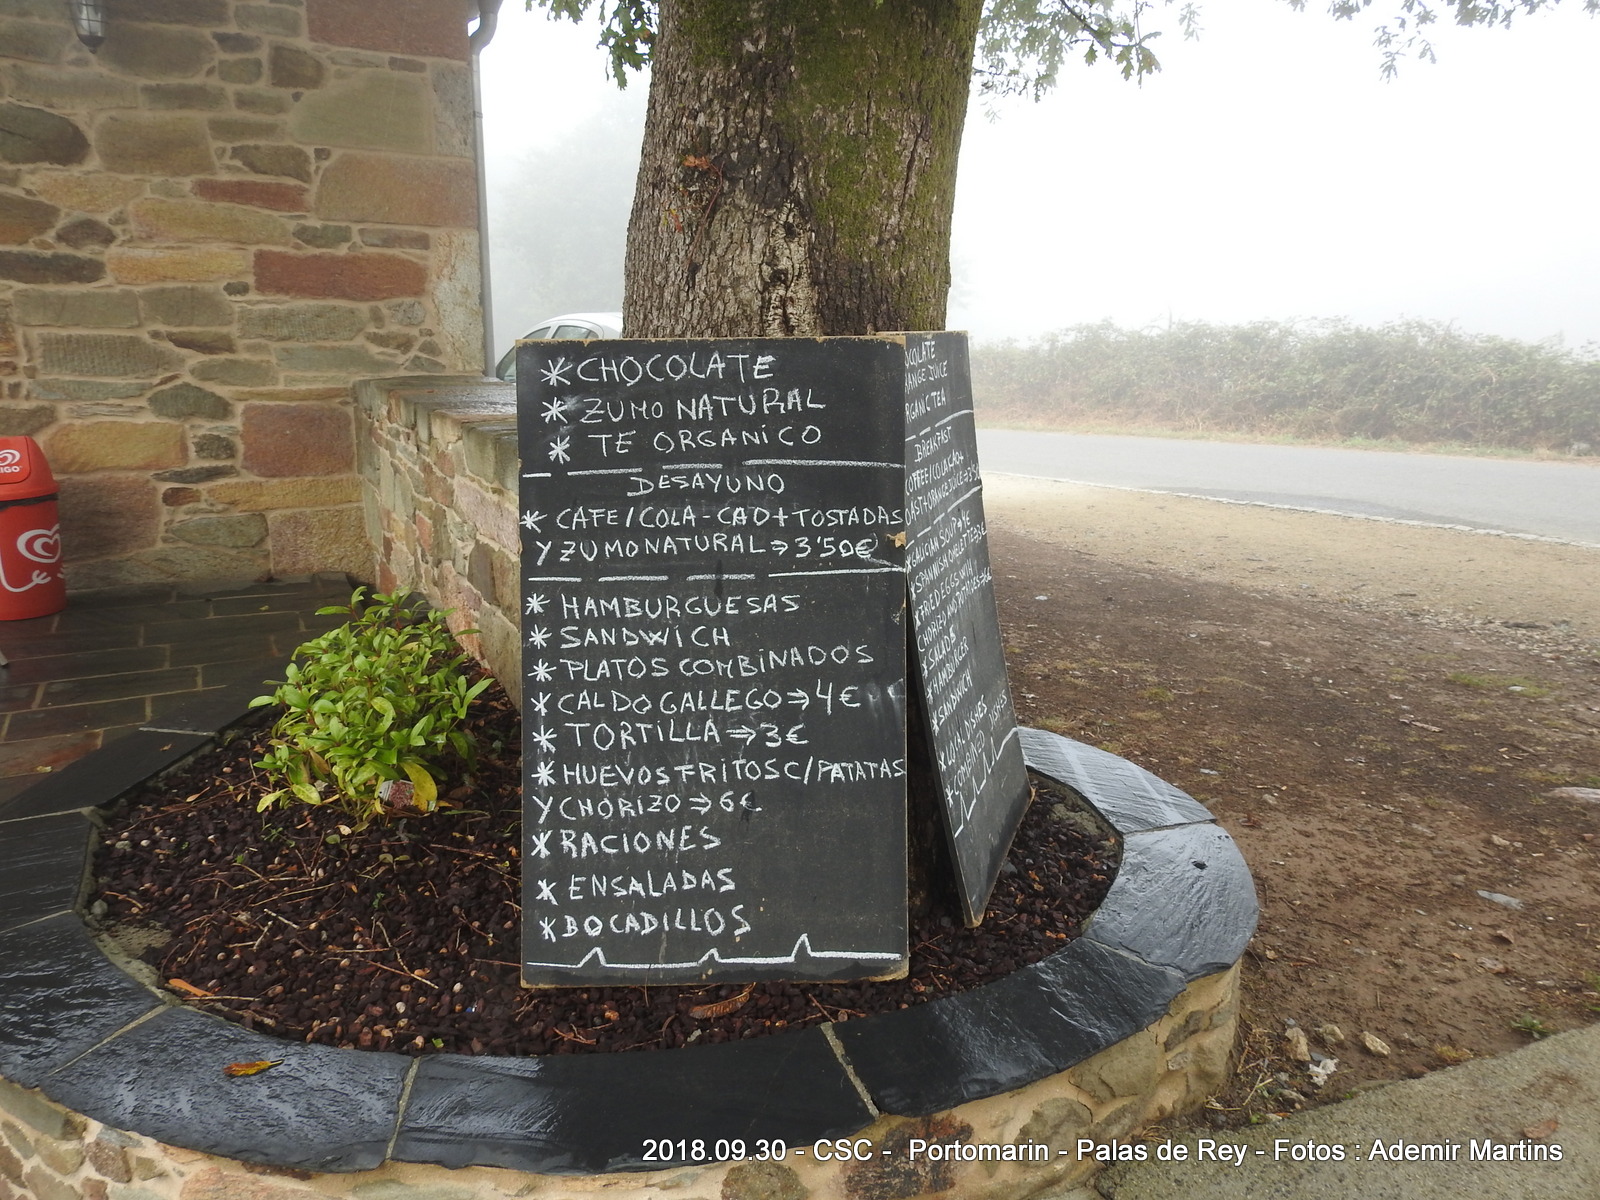 * CHOCOLATE
* ZUMO NATURAL
* TE ORGANICO
DESAYUNO
* CAFE/COLA-CAO+TOSTADAS
Y ZUMO NATURAL⇒3'50€
* HAMBURGUESAS
* SANDWICH
* PLATOS COMBINADOS
* CALDO GALLEGO⇒4€
* TORTILLA⇒3€
* HUEVOS FRITOS C/PATATAS
Y CHORIZO⇒6€
* RACIONES
* ENSALADAS
* BOCADILLOS
OCOLATE
ANGE JUICE
RGANIC TEA
BREAKFAST
COFFEE/COLACAO+
OAST+ORANGE JUICE⇒3'50
*GALICIAN SOUP⇒4€
*SPANNISH OMELETTE⇒3€
*FRIED EGGS WITH
CHORIZO AND POTATOES⇒6€
*SALADS
*HAMBURGER
*SANDWICH
*LOCAL DISHES
*COMBINED DISHES
2018.09.30 - CSC - Portomarin - Palas de Rey - Fotos : Ademir Martins